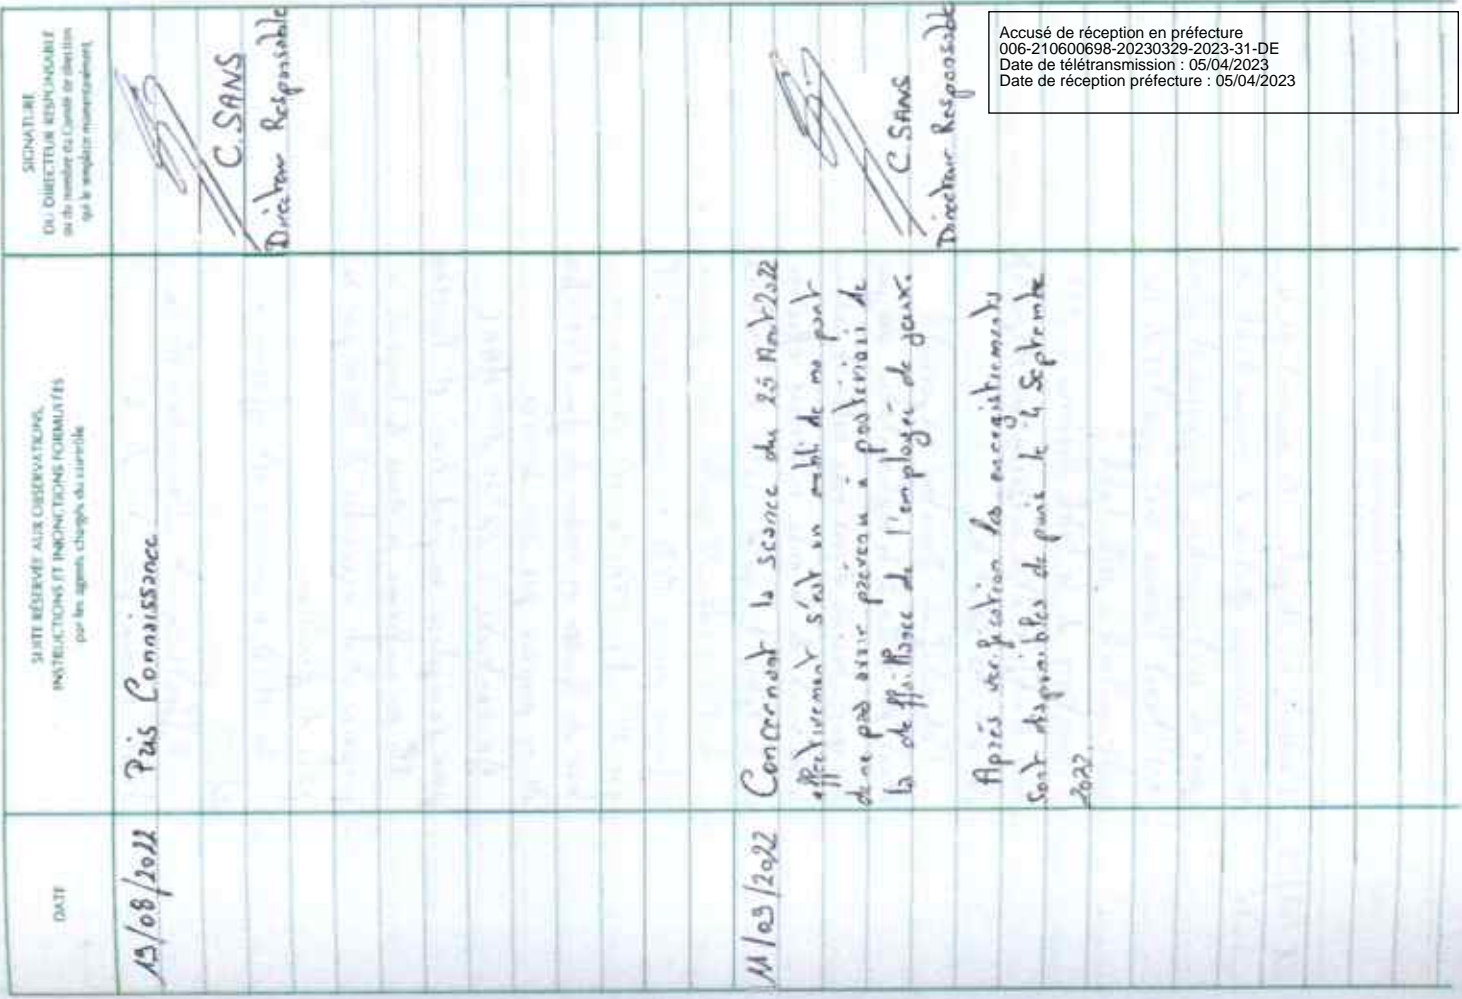 Accusé de réception en préfecture
006-210600698-20230329-2023-31-DE
Date de télétransmission : 05/04/2023
Date de réception préfecture : 05/04/2023
DATE
SUITE RÉSERVÉE AUX OBSERVATIONS,
INSTRUCTIONS ET INJONCTIONS FORMULÉES
par les agents chargés du contrôle
SIGNATURE
DU DIRECTEUR RESPONSABLE
ou du membre du Comité de direction
qui le remplace momentanément
19/08/2022
Pris Connaissance.
C. SANS
Directeur Responsable
11/09/2022
Concernant la séance du 25 Août 2022
effectivement s'est un oubli de ma part
de ne pas avoir prévenu à posteriori de
la deffaillance de l'employé de jeux.
C. SANS
Directeur Responsable
Après vérification les enregistrements
Sont disponibles depuis le 4 Septembre
2022.